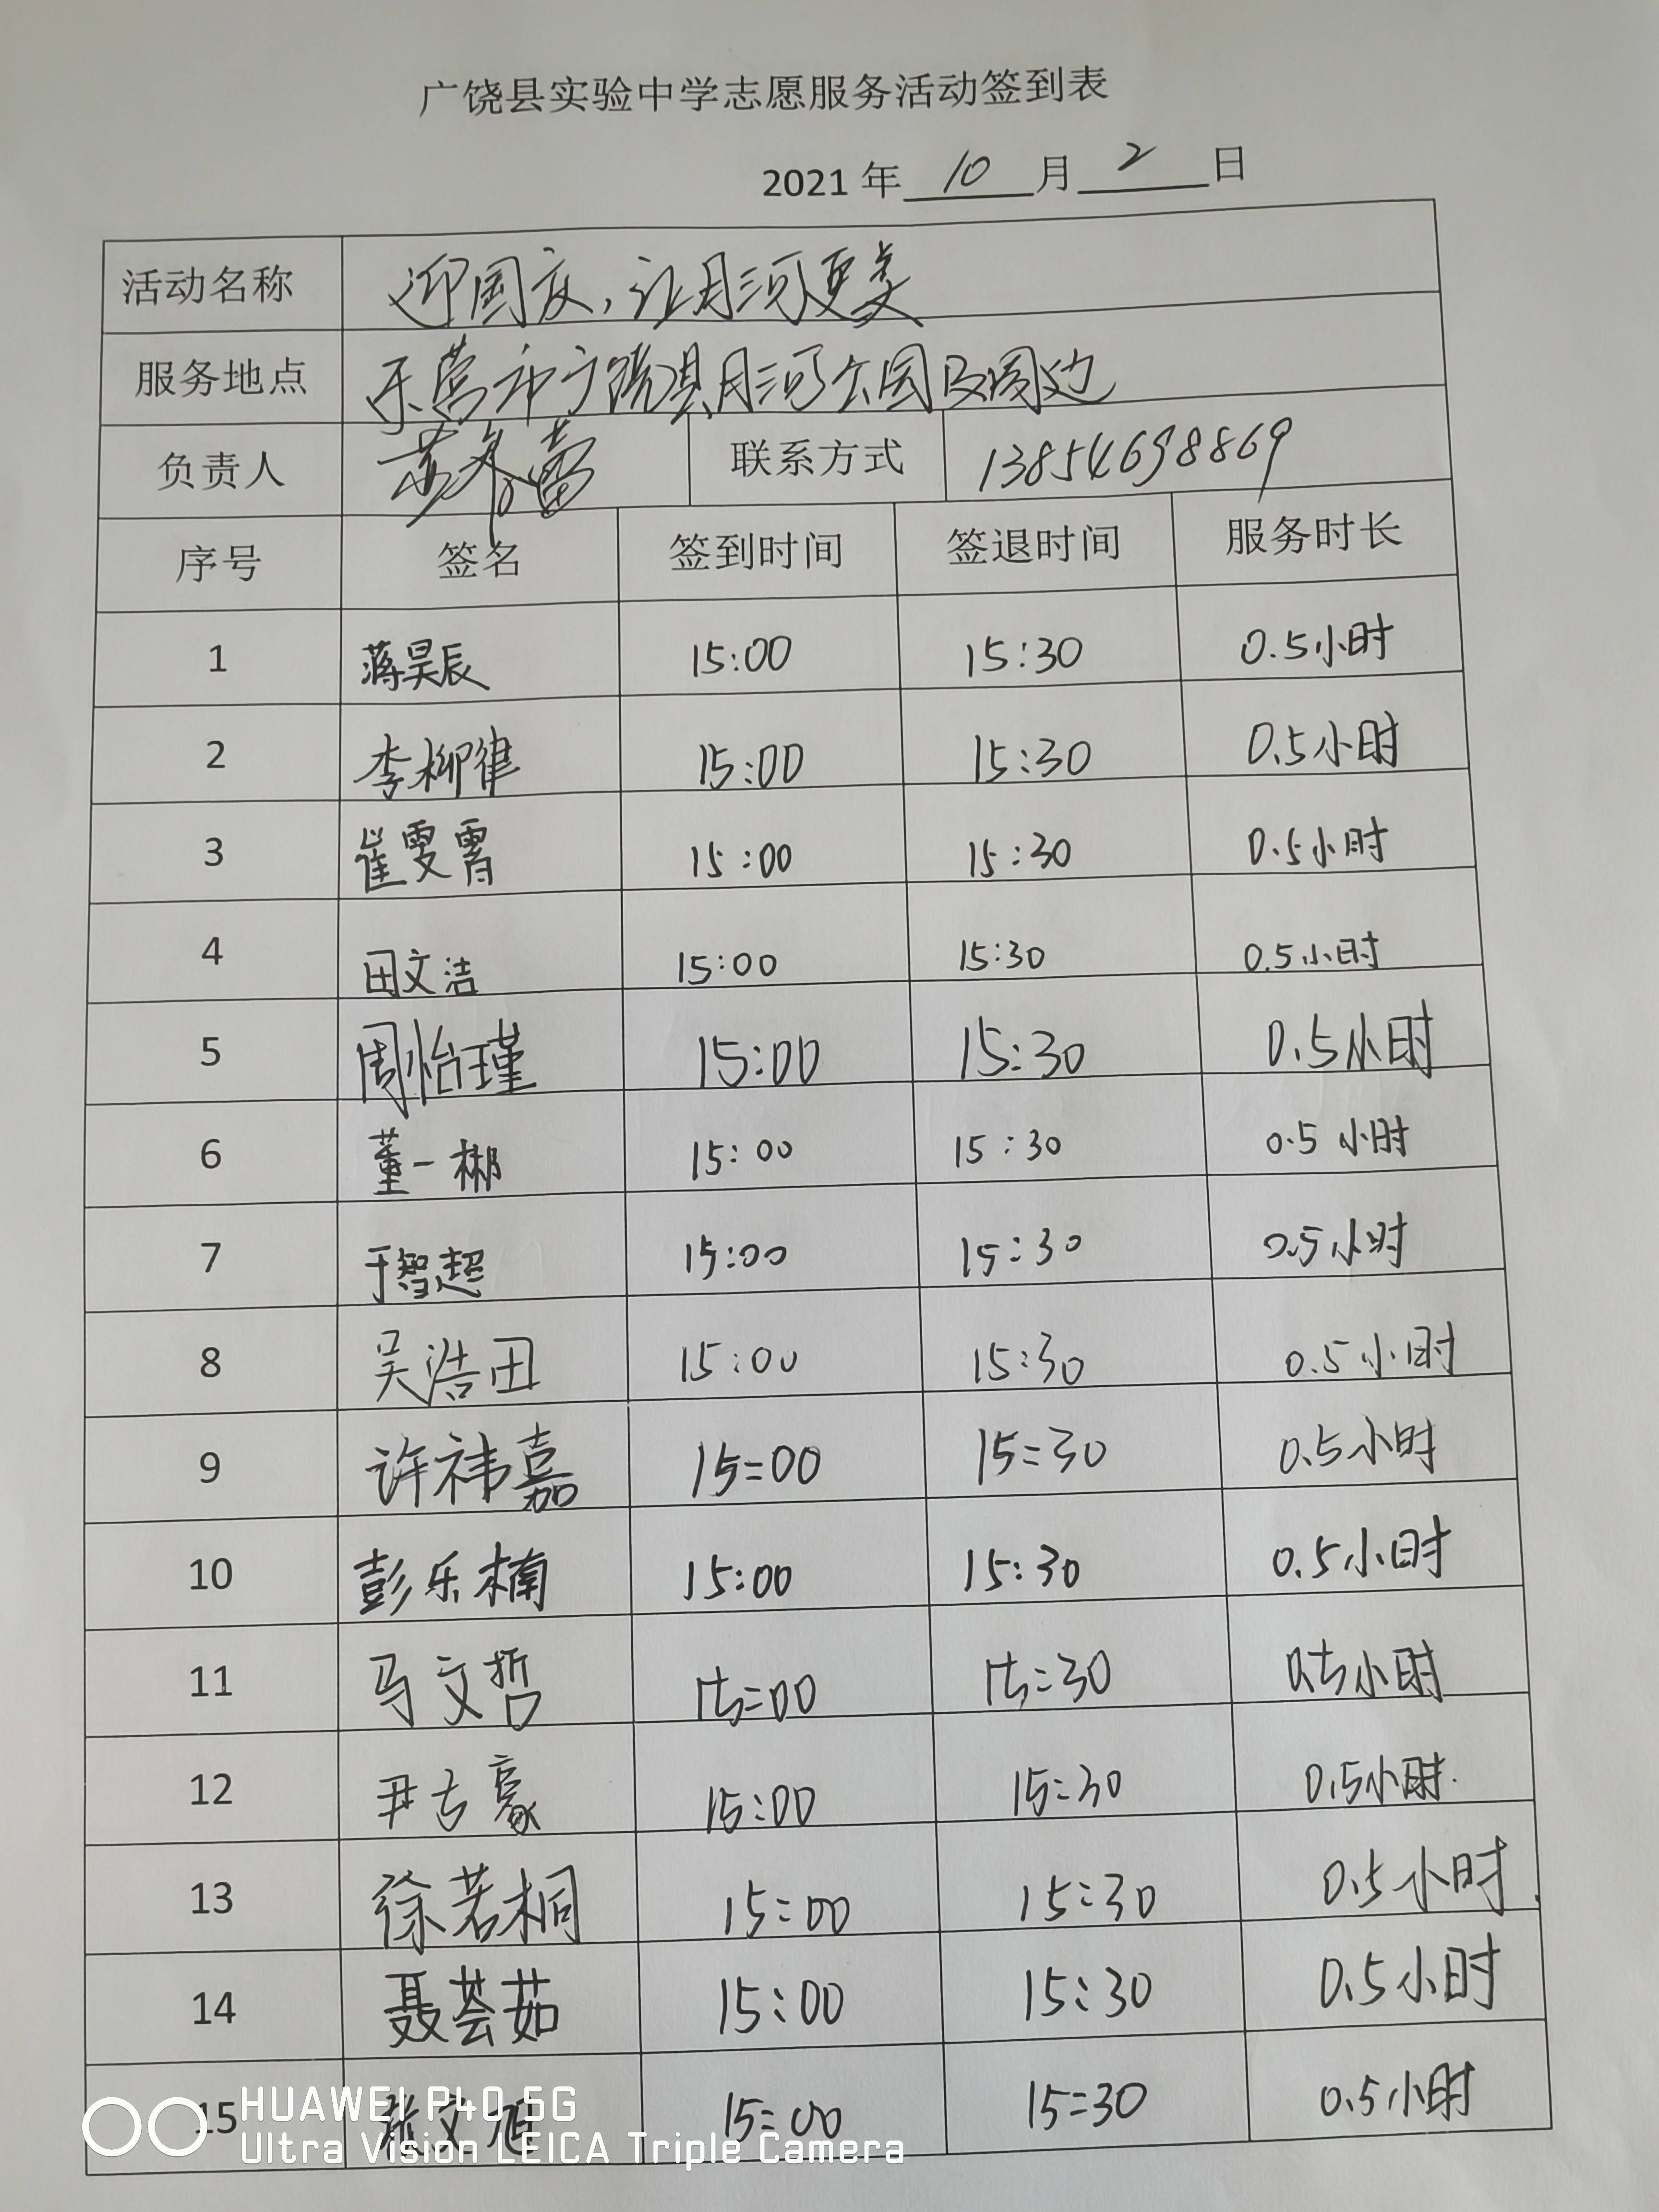 广饶县实验中学志愿服务活动签到表
2021 年 10 月 2 日
活动名称 迎国庆,让月河更美
服务地点 东营市广饶县月河公园及周边
负责人 联系方式 13854698869
序号 签名 签到时间 签退时间 服务时长
1 蒋昊辰 15:00 15:30 0.5小时
2 李柳律 15:00 15:30 0.5小时
3 崔雯霄 15:00 15:30 0.5小时
4 田文洁 15:00 15:30 0.5小时
5 周怡瑾 15:00 15:30 0.5小时
6 董一郴 15:00 15:30 0.5小时
7 于智超 15:00 15:30 0.5小时
8 吴浩田 15:00 15:30 0.5小时
9 许祎嘉 15:00 15:30 0.5小时
10 彭乐楠 15:00 15:30 0.5小时
11 马文哲 15:00 15:30 0.5小时
12 尹古豪 15:00 15:30 0.5小时
13 徐若桐 15:00 15:30 0.5小时
14 聂荟茹 15:00 15:30 0.5小时
15 张文旭 15:00 15:30 0.5小时
HUAWEI P40 5G
Ultra Vision LEICA Triple Camera